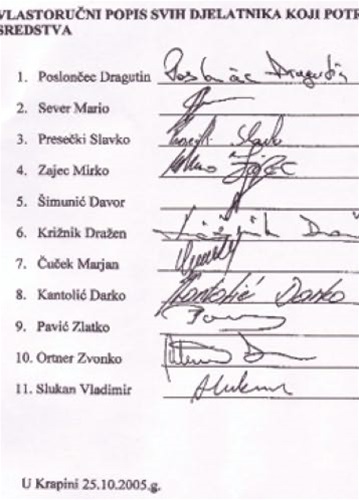 VLASTORUČNI POPIS SVIH DJELATNIKA KOJI POTR
SREDSTVA
1. Poslončec Dragutin Poslončec Dragutin
2. Sever Mario
3. Presečki Slavko Slavko
4. Zajec Mirko Zajec
5. Šimunić Davor
6. Križnik Dražen Križnik
7. Čuček Marjan
8. Kantolić Darko Kantolić Darko
9. Pavić Zlatko
10. Ortner Zvonko
11. Slukan Vladimir Slukan
U Krapini 25.10.2005.g.